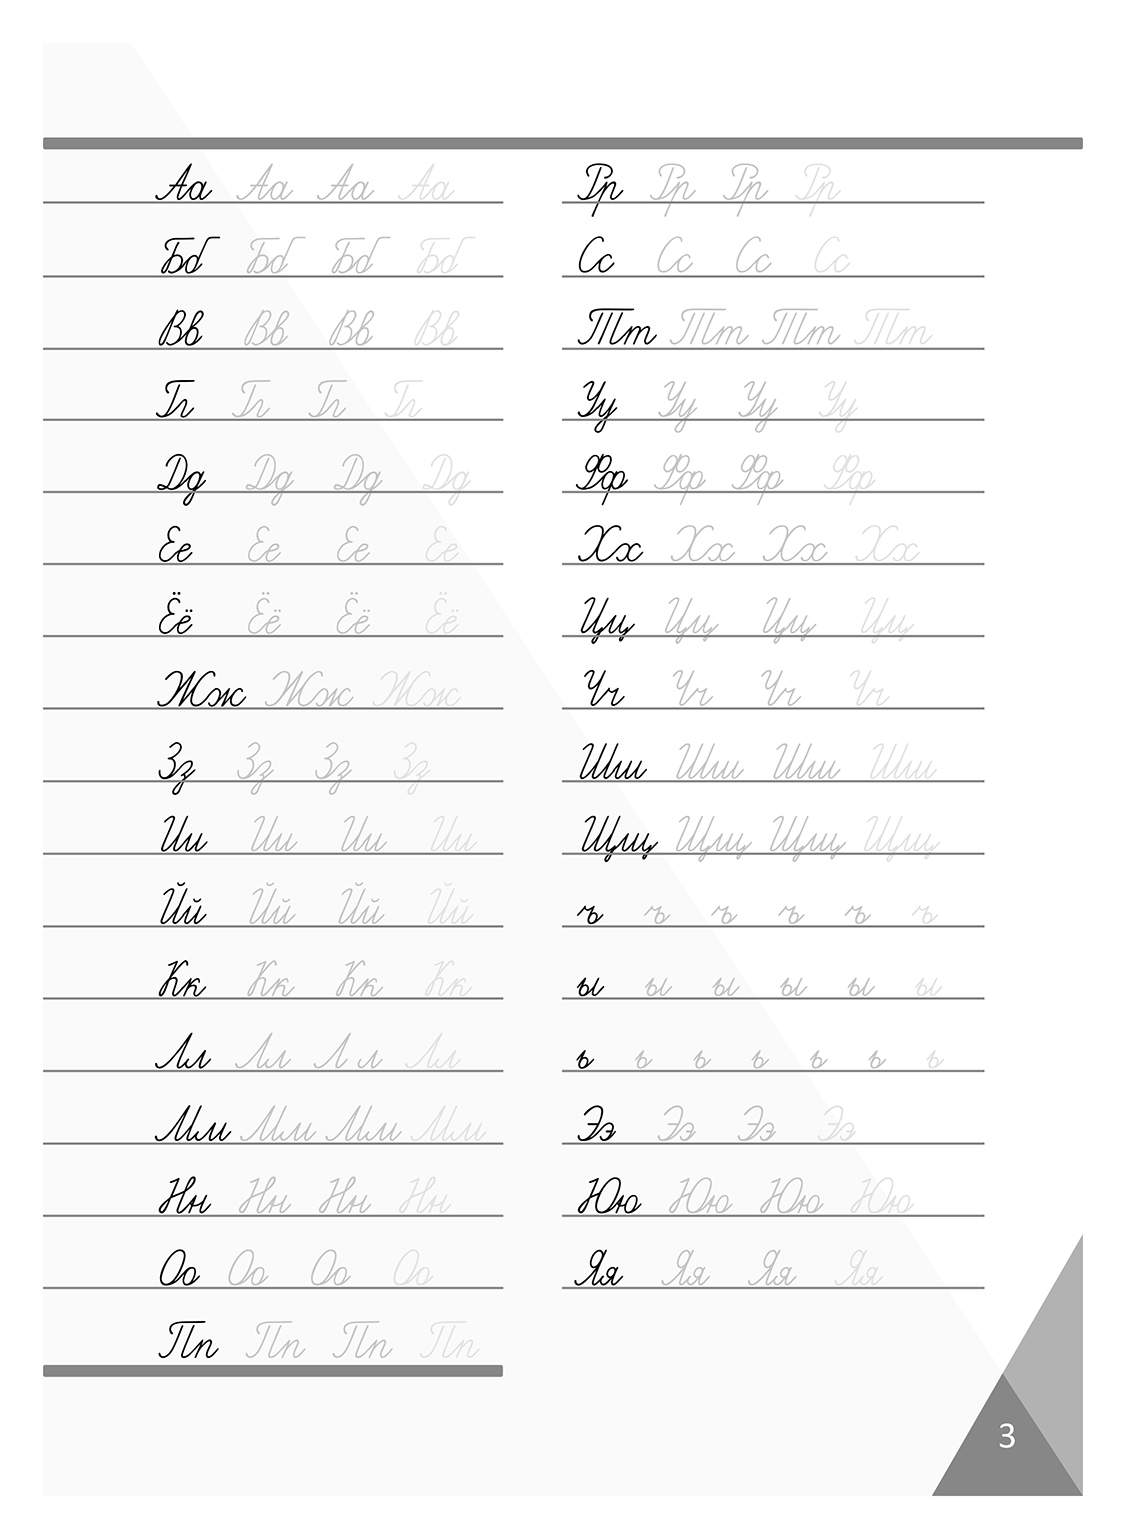 Аа Аа Аа Аа
Бб Бб Бб Бб
Вв Вв Вв Вв
Гг Гг Гг Гг
Дд Дд Дд Дд
Ее Ее Ее Ее
Ёё Ёё Ёё Ёё
Жж Жж Жж
Зз Зз Зз Зз
Ии Ии Ии Ии
Йй Йй Йй Йй
Кк Кк Кк Кк
Лл Лл Л л Лл
Мм Мм Мм Мм
Нн Нн Нн Нн
Оо Оо Оо Оо
Пп Пп Пп Пп
Рр Рр Рр Рр
Сс Сс Сс Сс
Тт Тт Тт Тт
Уу Уу Уу Уу
Фф Фф Фф Фф
Хх Хх Хх Хх
Цц Цц Цц Цц
Чч Чч Чч Чч
Шш Шш Шш Шш
Щщ Щщ Щщ Щщ
ъ ъ ъ ъ ъ ъ
ы ы ы ы ы ы
ь ь ь ь ь ь ь
Ээ Ээ Ээ Ээ
Юю Юю Юю Юю
Яя Яя Яя Яя
3